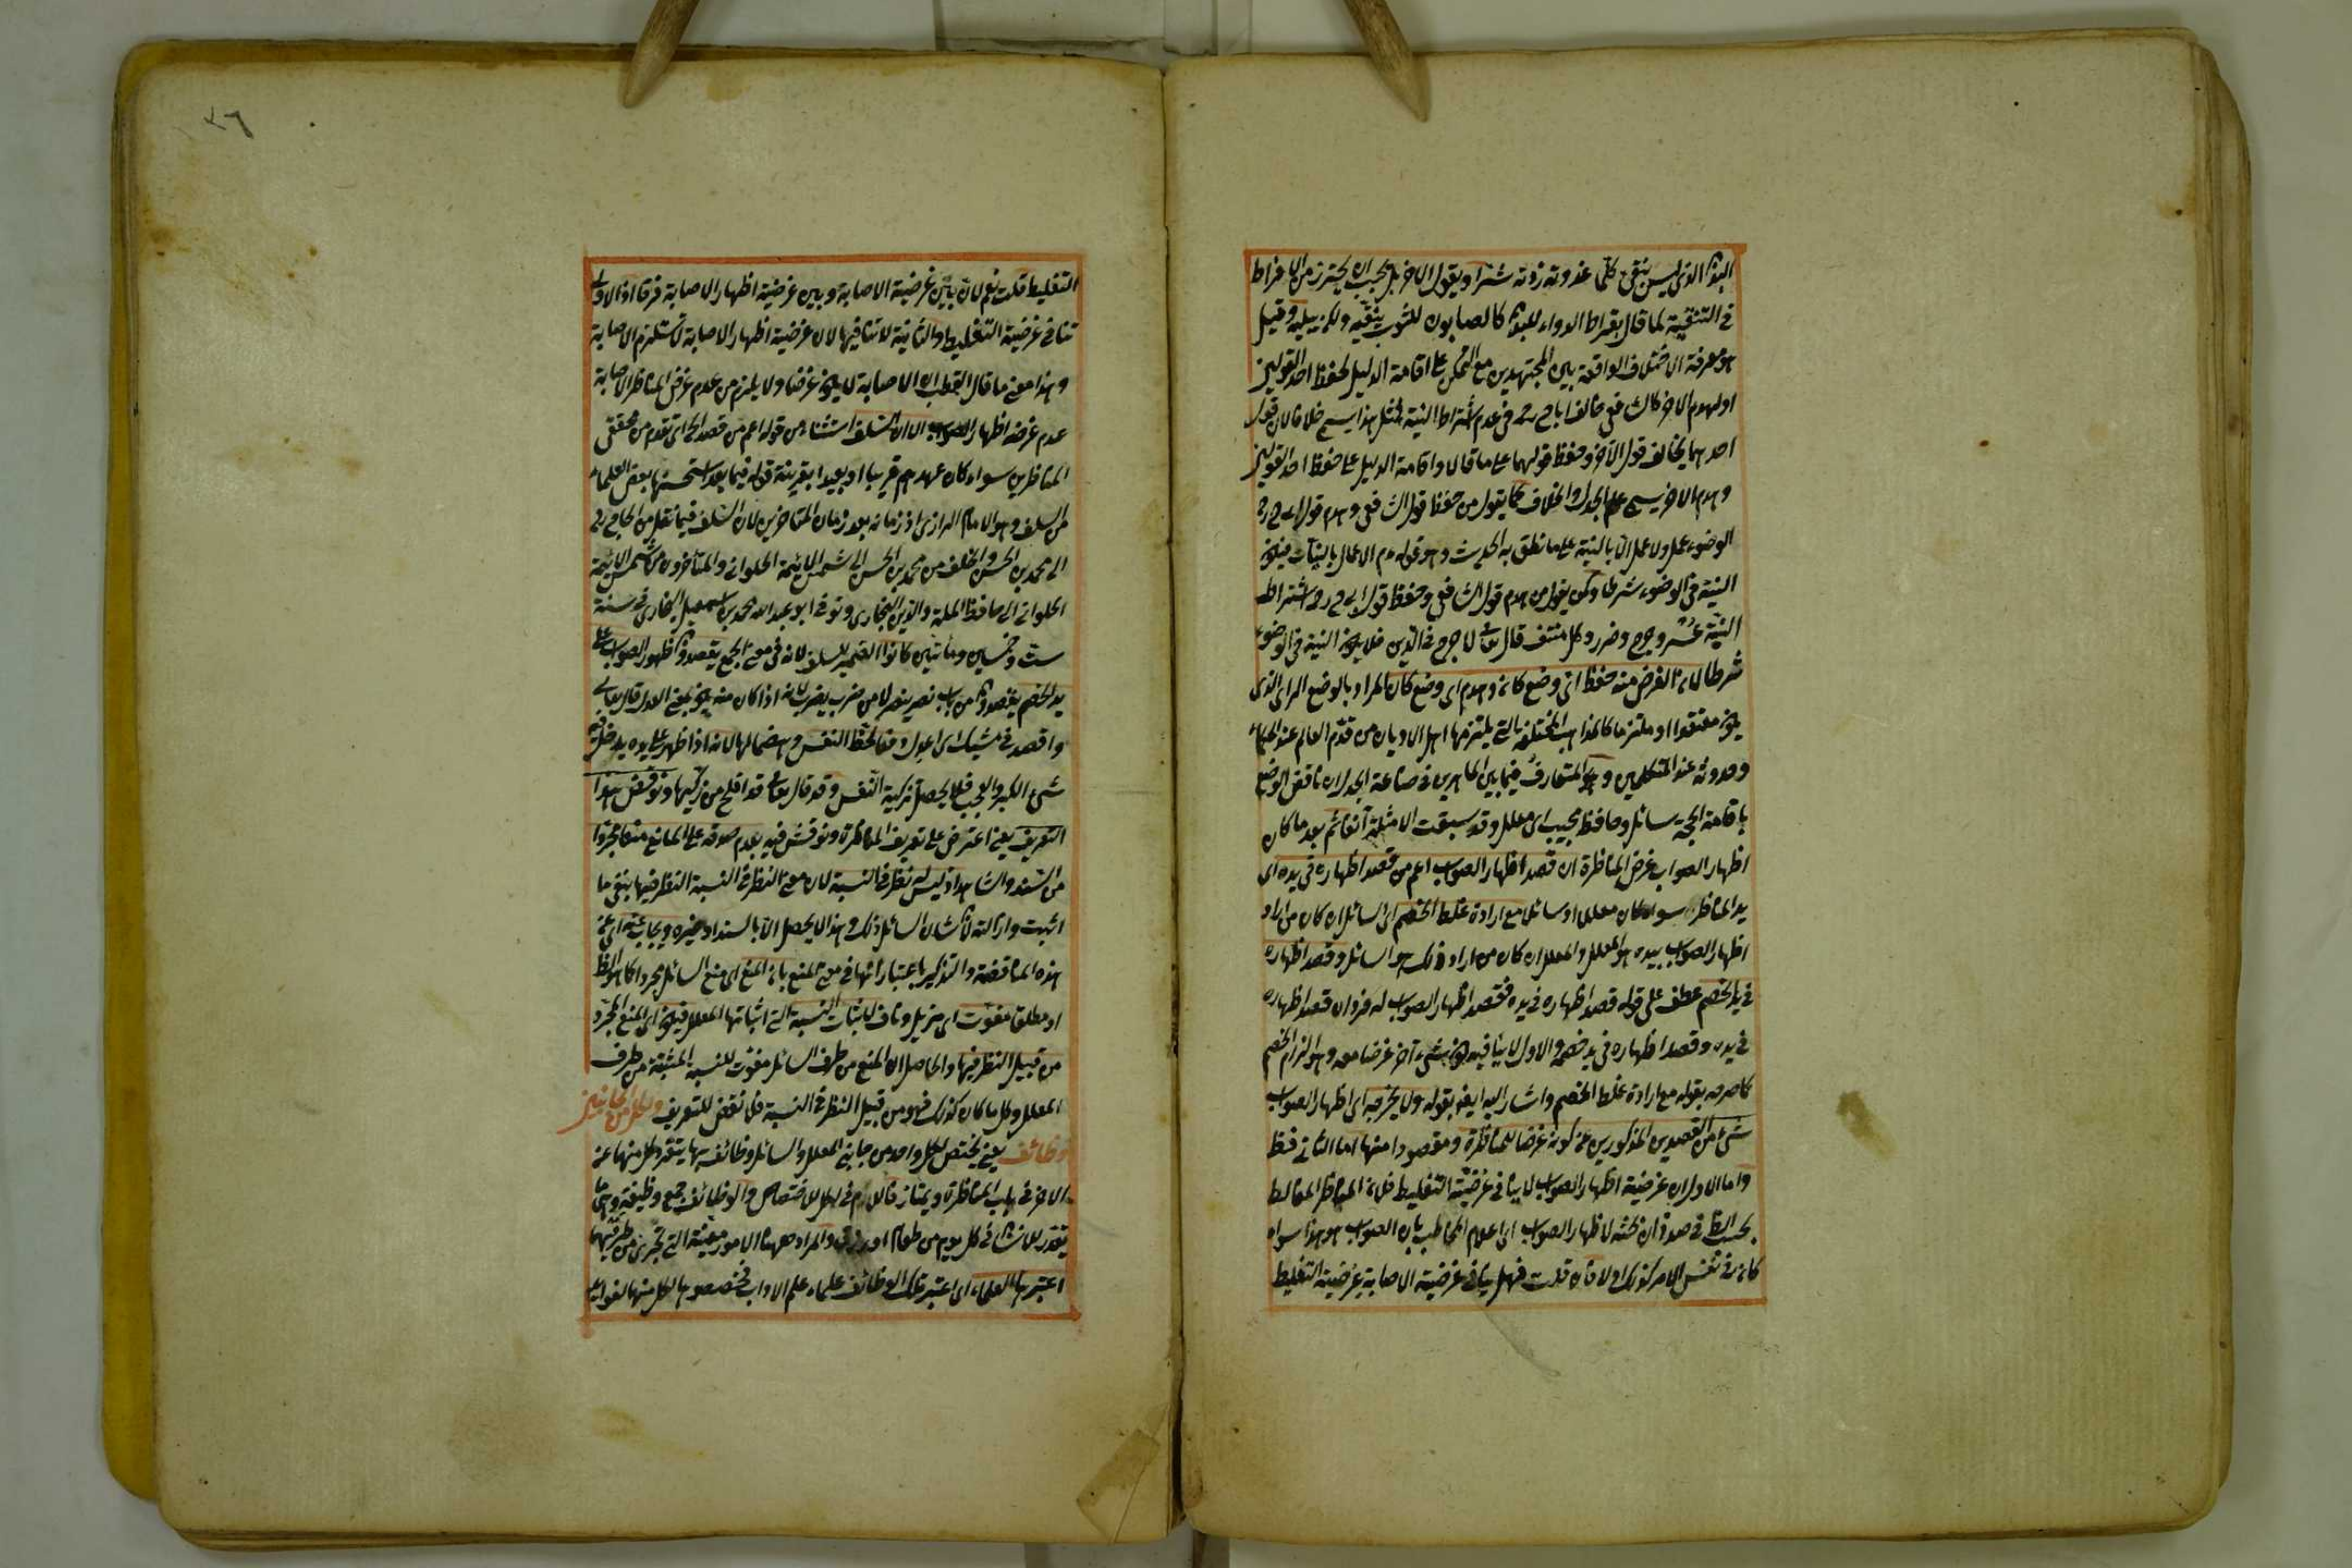 البدن الذي ليس بنقي كلما غذوته زدته شرا ويقول الآخر بل يجب ان يحترز من الافراط
في التنقية لما قال بقراط الدواء للبدن كالصابون للثوب ينقيه ولكن يبليه وقيل
هو معرفة الاختلاف الواقعة بين المجتهدين مع التمكن على اقامة الدليل لحفظ احد القولين
او لهدم الآخر كالشافعي خالف ابا ح رح في عدم اشتراط النية فمثل هذا يسمى خلافا لان قول
احدهما يخالف قول الآخر وحفظ قولهما على ما قالا واقامة الدليل على حفظ احد القولين
وهدم الآخر يسمى علم الجدل والخلاف كما يقول من حفظ قول الشافعي وهدم قول ابي ح رح
الوضوء عمل ولا عمل الا بالنية على ما نطق به الحديث وهو قوله عم الاعمال بالنيات فيكون
النية في الوضوء شرطا ولمن يقول من هدم قول الشافعي وحفظ قول ابي ح رح اشتراط
النية عسر وحرج وضرر وكل منتف قال تعالى لا حرج في الدين فلا يكون النية في الوضوء
شرطا لما ان الغرض منه حفظ اي وضع كان وهدم اي وضع كان المراد بالوضع الرأي الذي
يكون معتقدا او ملتزما كالمذاهب المختلفة التي يلتزمها اهل الاديان من قدم العالم عند الحكماء
وحدوثه عند المتكلمين وهو المتعارف فيما بين الماهرين في صناعة الجدل ان ناقض الوضع
باقامة الحجة سائل وحافظ مجيب اي معلل وقد سبقت الامثلة آنفا ثم بعد ما كان
اظهار الصواب غرض المناظرة ان قصد اظهار الصواب اعم من قصد اظهاره في يده اي
يد المناظر سواء كان معللا او سائلا مع ارادة غلط الخصم اي السائل ان كان من اراد
اظهار الصواب بيده هو المعلل والمعلل ان كان من اراد ذلك هو السائل وقصد اظهاره
في يد الخصم عطف على قوله قصد اظهاره في يده فقصد اظهار الصواب له فردان قصد اظهاره
في يده وقصد اظهاره في يد خصمه والاول لا ينافيه كون شيء آخر غرضا معه وهو الزام الخصم
كما صرح به بقوله مع ارادة غلط الخصم واشار اليه ايضا بقوله ولا يخرجه اي اظهار الصواب
شيء من القصدين المذكورين عن كونه غرضا للمناظرة ومقصودا منها اما الثاني فظ
واما الاول ان غرضية اظهار الصواب لا ينافي غرضية التغليط فلان المناظر المغالط
بحسب الظ في صدد ان بحثه لاظهار الصواب اي اعلام المخاطب بان الصواب هو هذا سواء
كان في نفس الامر كذلك او لا فان قلت فهل ينافي غرضية الاصابة غرضية التغليط
التغليط قلت نعم لان بين غرضية الاصابة وبين غرضية اظهار الاصابة فرقا اذ الاولى
تنافي غرضية التغليط والثانية لا تنافيها لان غرضية اظهار الاصابة لا تستلزم الاصابة
وهذا معنى ما قال القطب ان الاصابة لا يكون غرضا ولا يلزم من عدم غرض المناظر الاصابة
عدم غرضه اظهار الصواب الا ان السلف استثناء من قوله اعم من قصد الخ اي تقدم من محققي
المناظرين سواء كان عهدهم قريبا او بعيدا بقرينة قوله فيما بعد استحسنها بعض العلماء
من السلف وهو الامام الرازي اذ زمانه بعد زمان المتاخرين لان السلف فيما نقل من ابي ح رح
الى محمد بن الحسن والخلف من محمد بن الحسن الى شمس الائمة الحلواني والمتأخرون من شمس الائمة
الحلواني الى حافظ الملة والدين البخاري وتوفي ابو عبد الله محمد بن اسمعيل البخاري في سنة
ست وخمسين ومأتين كانوا الضمير للسلف لانه في معنى الجمع يقصدون ظهور الصواب على
يد الخصم يقصدون من باب نصر ينصر لا من ضرب يضرب لانه اذا كان منه يكون بمعنى العدل قال تعالى
واقصد في مشيك اي اعدل دفعا لحظ النفس وهضما لها لانه اذا ظهر على يده يدخل فيه
شيء الكبر والعجب فلا يحصل تزكية النفس وقد قال تعالى قد افلح من زكيها ونوقض هذا
التعريف يعني اعترض على تعريف المناظرة ونوقش فيه بعدم صدقه على المانع منعا مجردا
من السند والشاهد اذ ليس له نظر في النسبة لان معنى النظر في النسبة النظر فيها بنفي ما
اثبت وازالته لان شان السائل ذلك وهذا لا يحصل الا بالسند او غيره ويجاب عنه اي عن
هذه المناقضة والتذكير باعتبار انها في معنى المنع بان المنع اي منع السائل مجردا كما هو الظ
او مطلقا مفوت اي مزيل وناف لاثبات النسبة التي اثباتها المعلل فيكون اي المنع المجرد
من قبيل النظر فيها والحاصل ان المنع من طرف السائل مفوت للنسبة المثبتة من طرف
المعلل وكل ما كان كذلك فهو من قبيل النظر في النسبة فلا نقض للتعريف ولكل من الجانبين
وظائف يعني يختص لكل واحد من جانبي المعلل والسائل وظائف بها يتفرد كل منهما عن
الآخر في باب المناظرة ويمتاز فاللام في لكل للاختصاص والوظائف جمع وظيفة وهي ما
يقدر للانسان في كل يوم من طعام او رزق والمراد ههنا الامور معينة التي تجري من طرفيهما
اعتبرها العلماء اي اعتبر تلك الوظائف علماء علم الاداب فخصصوها لكل منهما لفوائد
٣٦